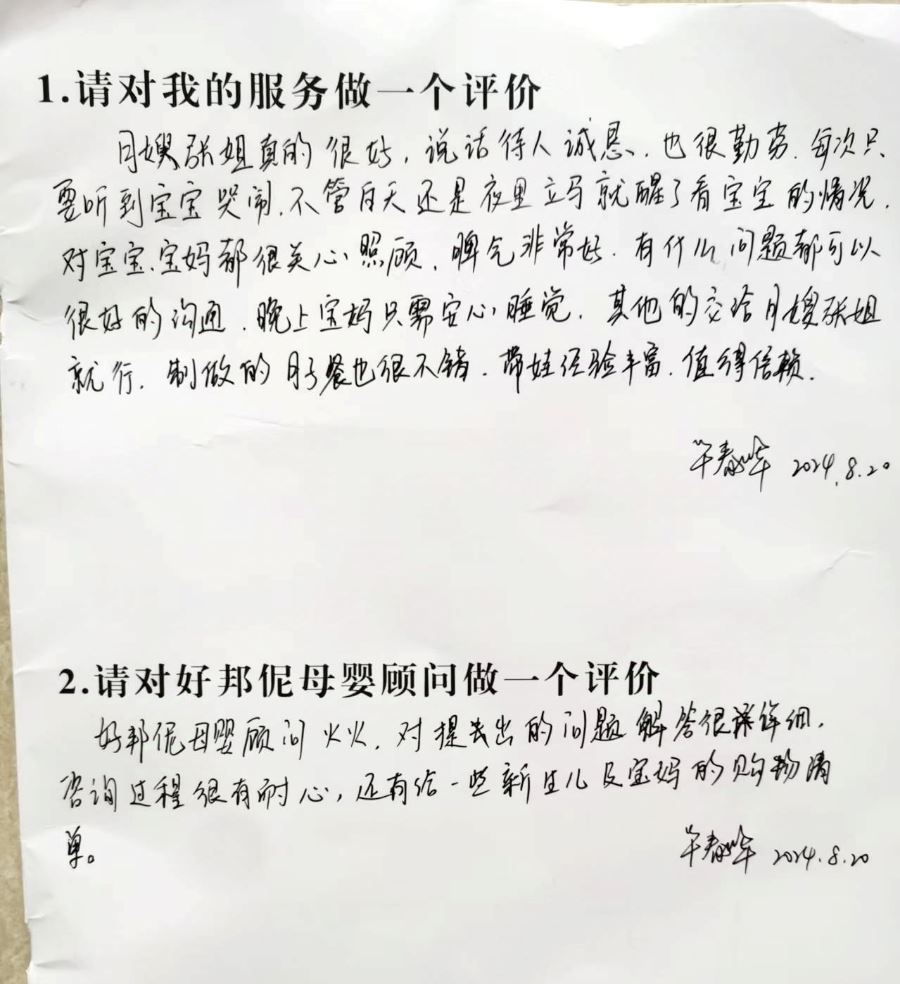 1.请对我的服务做一个评价
月嫂张姐真的很好，说话待人诚恳.也很勤劳.每次只
要听到宝宝哭闹.不管白天还是夜里立马就醒了看宝宝的情况.
对宝宝、宝妈都很关心照顾.脾气非常好.有什么问题都可以
很好的沟通.晚上宝妈只需安心睡觉.其他的交给月嫂张姐
就行.制做的月子餐也很不错.带娃经验丰富.值得信赖.
2024.8.20
2.请对好邦伲母婴顾问做一个评价
好邦伲母婴顾问火火.对提出的问题解答很详细.
咨询过程很有耐心，还有给一些新生儿及宝妈的购物清
单。
2024.8.20